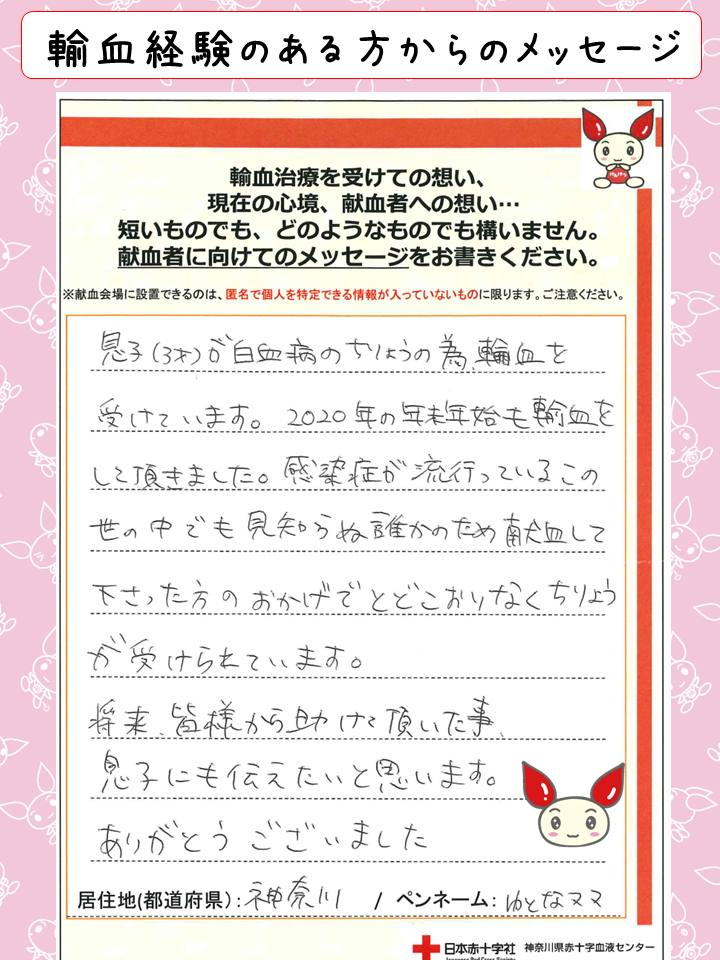 輸血経験のある方からのメッセージ
輸血治療を受けての想い、
現在の心境、献血者への想い…
短いものでも、どのようなものでも構いません。
献血者に向けてのメッセージをお書きください。
※献血会場に設置できるのは、匿名で個人を特定できる情報が入っていないものに限ります。ご注意ください。
息子(3才)が白血病のちりょうの為、輸血を
受けています。2020年の年末年始も輸血を
して頂きました。感染症が流行っているこの
世の中でも見知らぬ誰かのため献血して
下さった方のおかげでとどこおりなくちりょう
が受けられています。
将来、皆様から助けて頂いた事、
息子にも伝えたいと思います。
ありがとうございました
居住地(都道府県):神奈川 / ペンネーム:ゆとなママ
日本赤十字社 神奈川県赤十字血液センター